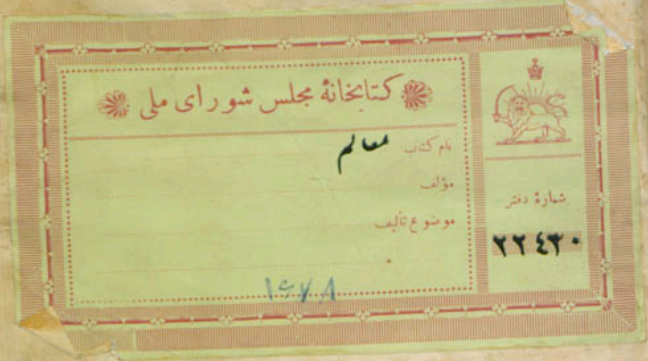 کتابخانهٔ مجلس شورای ملی
نام کتاب معالم
مؤلف
موضوع تألیف
شمارهٔ دفتر
۲۲٤۳۰